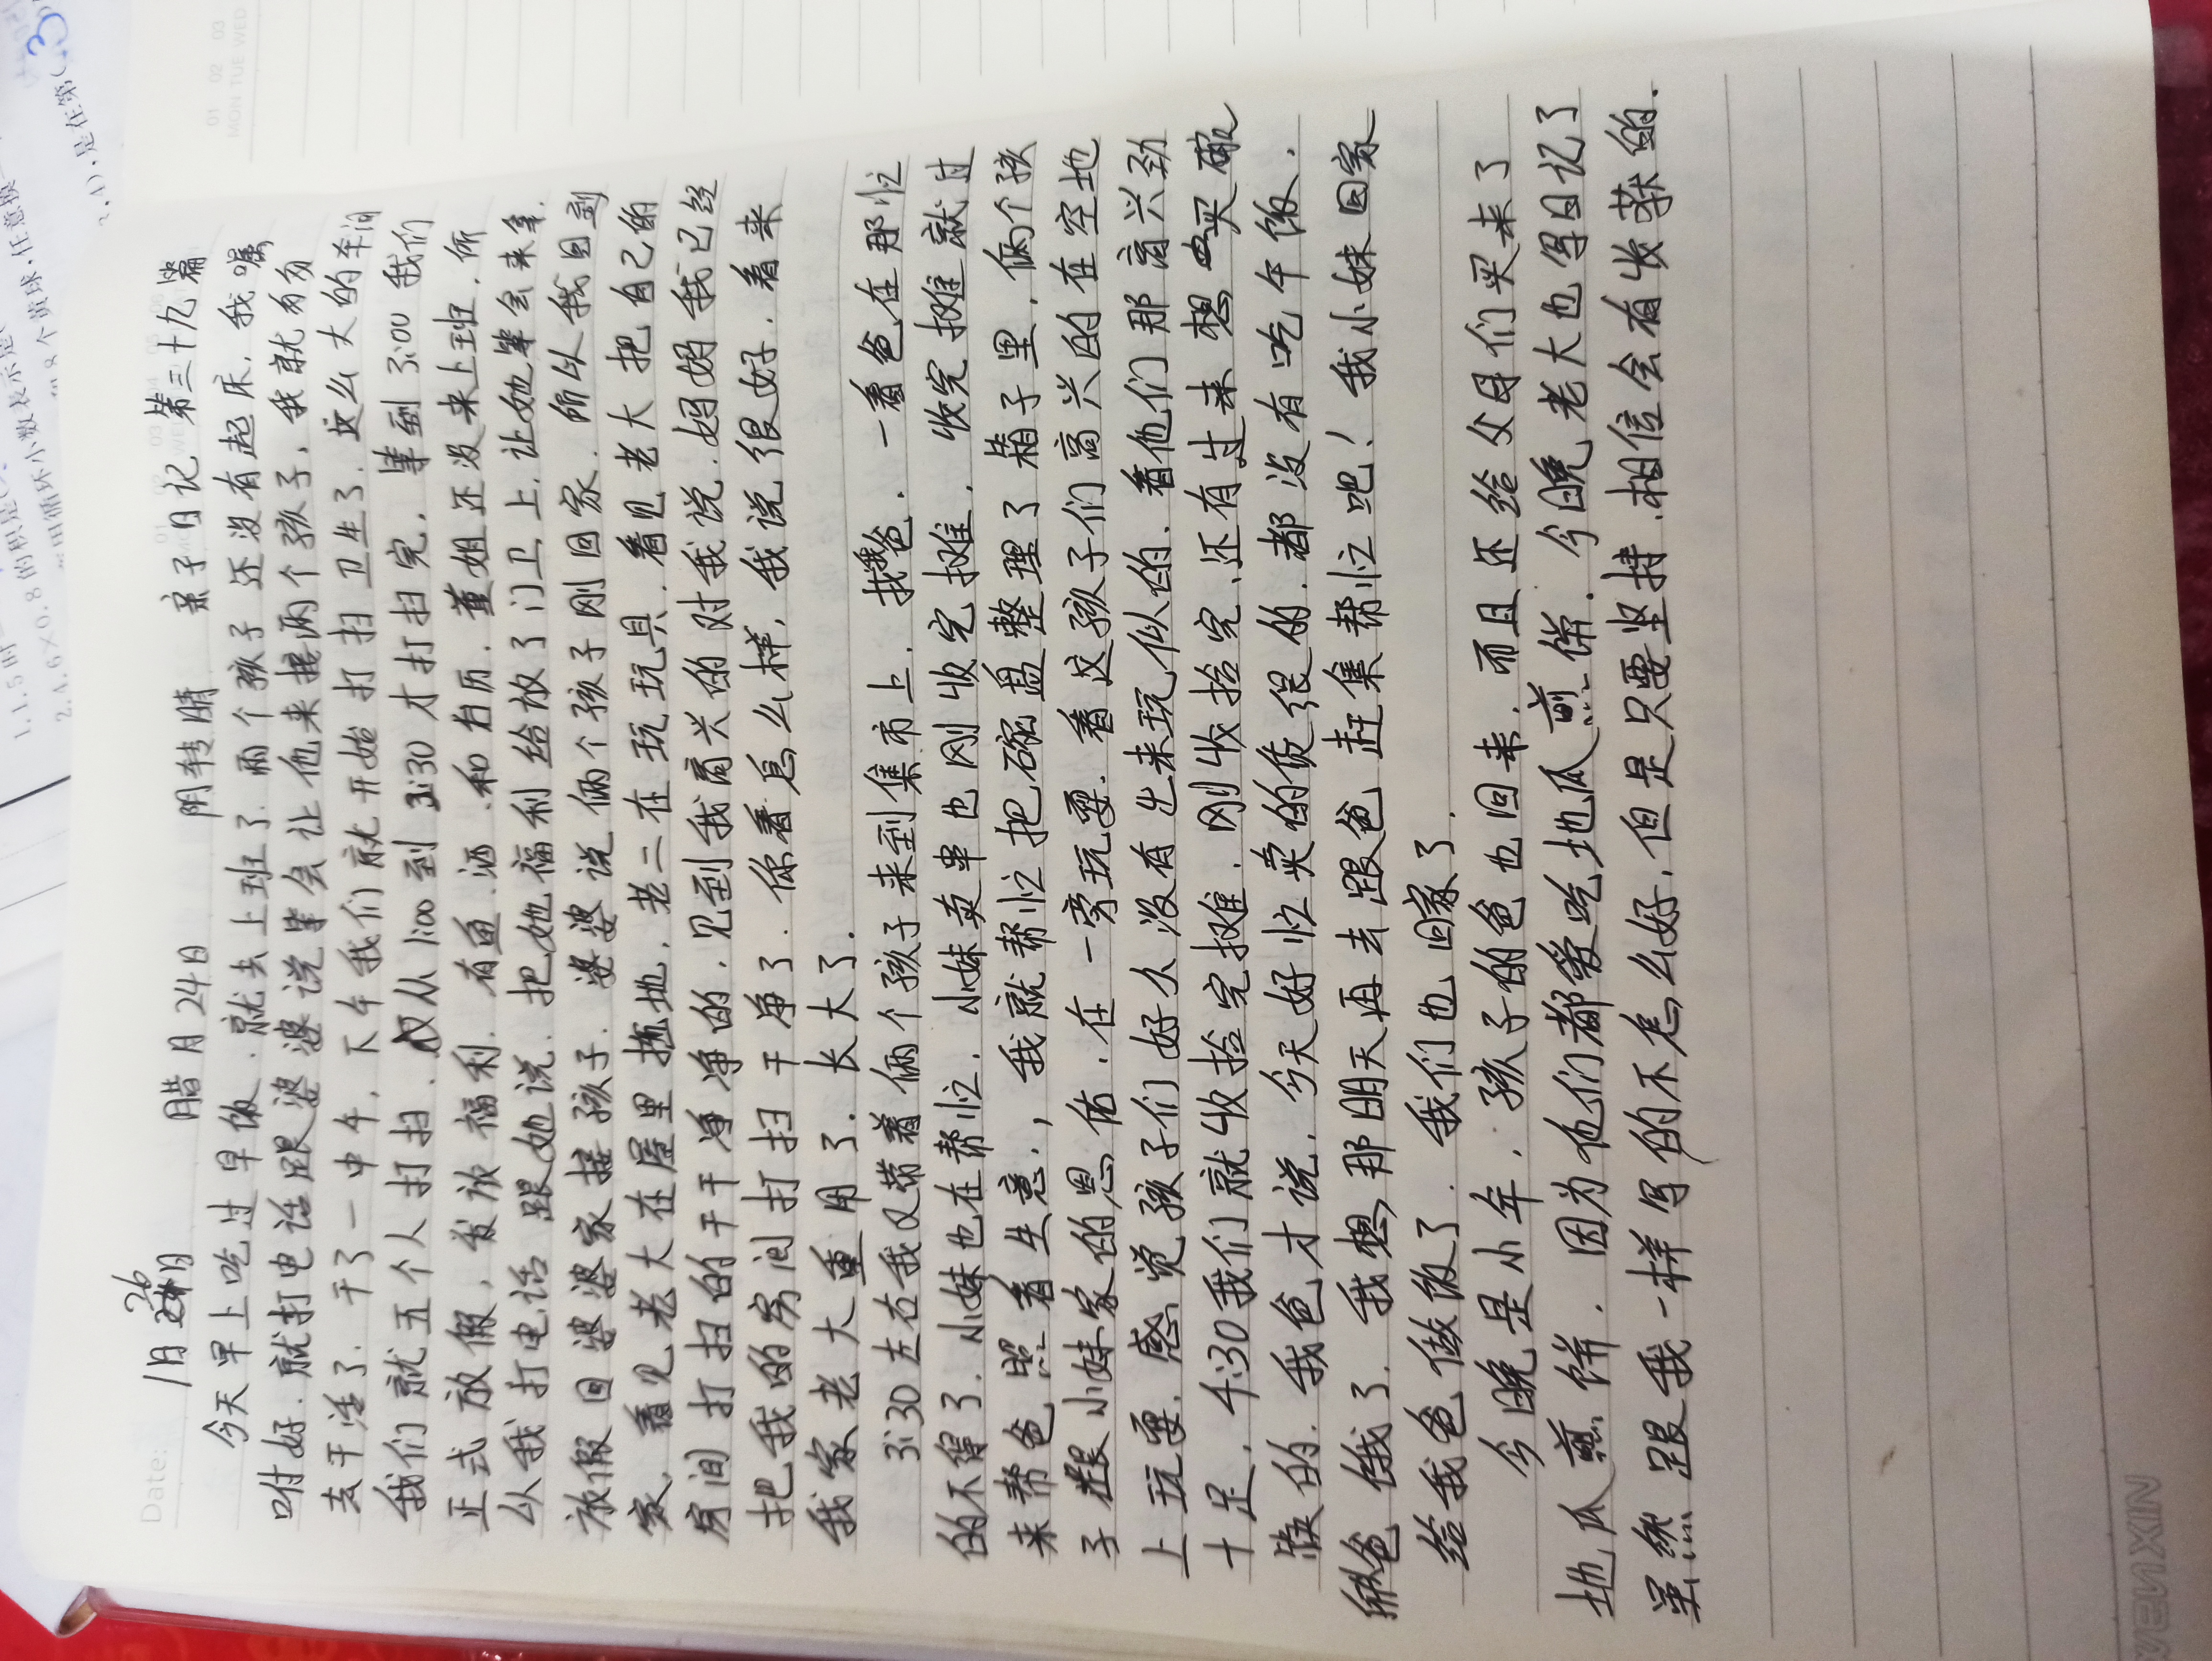 Date: 1月26日 腊月24日 阴转晴 亲子日记 第三十九篇
今天早上吃过早饭.就去上班了.两个孩子还没有起床.我嘱
咐好.就打电话跟婆婆说等会让他来接两个孩子,我就
去干活了.干了一中午.下午我们就开始打扫卫生了.这么大的车间
我们就五个人打扫.从1:00到3:30才打扫完.等到3:00我们
正式放假,发放福利.有鱼.酒.和台历.董姐还没来上班.所
以我打电话跟她说.把她福利给放了门卫上.让她等会来拿.
放假回婆婆家接孩子.婆婆说俩个孩子刚回家.所以我回到
家,看见老大在屋里拖地,老二在玩玩具.看见老大把自己的
房间打扫的干干净净的.见到我高兴的对我说.妈妈我已经
把我的房间打扫干净了.你看怎么样,我说很好.看来
我家老大重用了.长大了.
3:30左右我又带着俩个孩子来到集市上.找我爸.一看爸在那忙
的不得了.小妹也在帮忙.小妹卖串也刚收完摊.收完摊就过
来帮爸照看生意.,我就帮忙把碗盘整理了箱子里.俩个孩
子跟小妹家的恩佑.在一旁玩耍.看这孩子们高兴的在空地
上玩耍.感觉孩子们好久没有出来玩似的.看他们那高兴劲
十足.4:30我们就收拾完摊.刚收拾完.还有过来想买碗
筷的.我爸才说.今天好忙卖的货很的.都没有吃午饭.
爸饿了.我想那明天再去跟爸赶集帮忙吧!我小妹回家
给我爸做饭了.我们也回家了.
今晚是小年,孩子的爸也回来.而且还给父母们买来了
地瓜煎饼.因为他们都爱吃地瓜煎饼.今晚老大也写日记了
虽然跟我一样写的不怎么好.但是只要坚持.相信会有收获的.
WENXIN
01 02 03
MON TUE WED